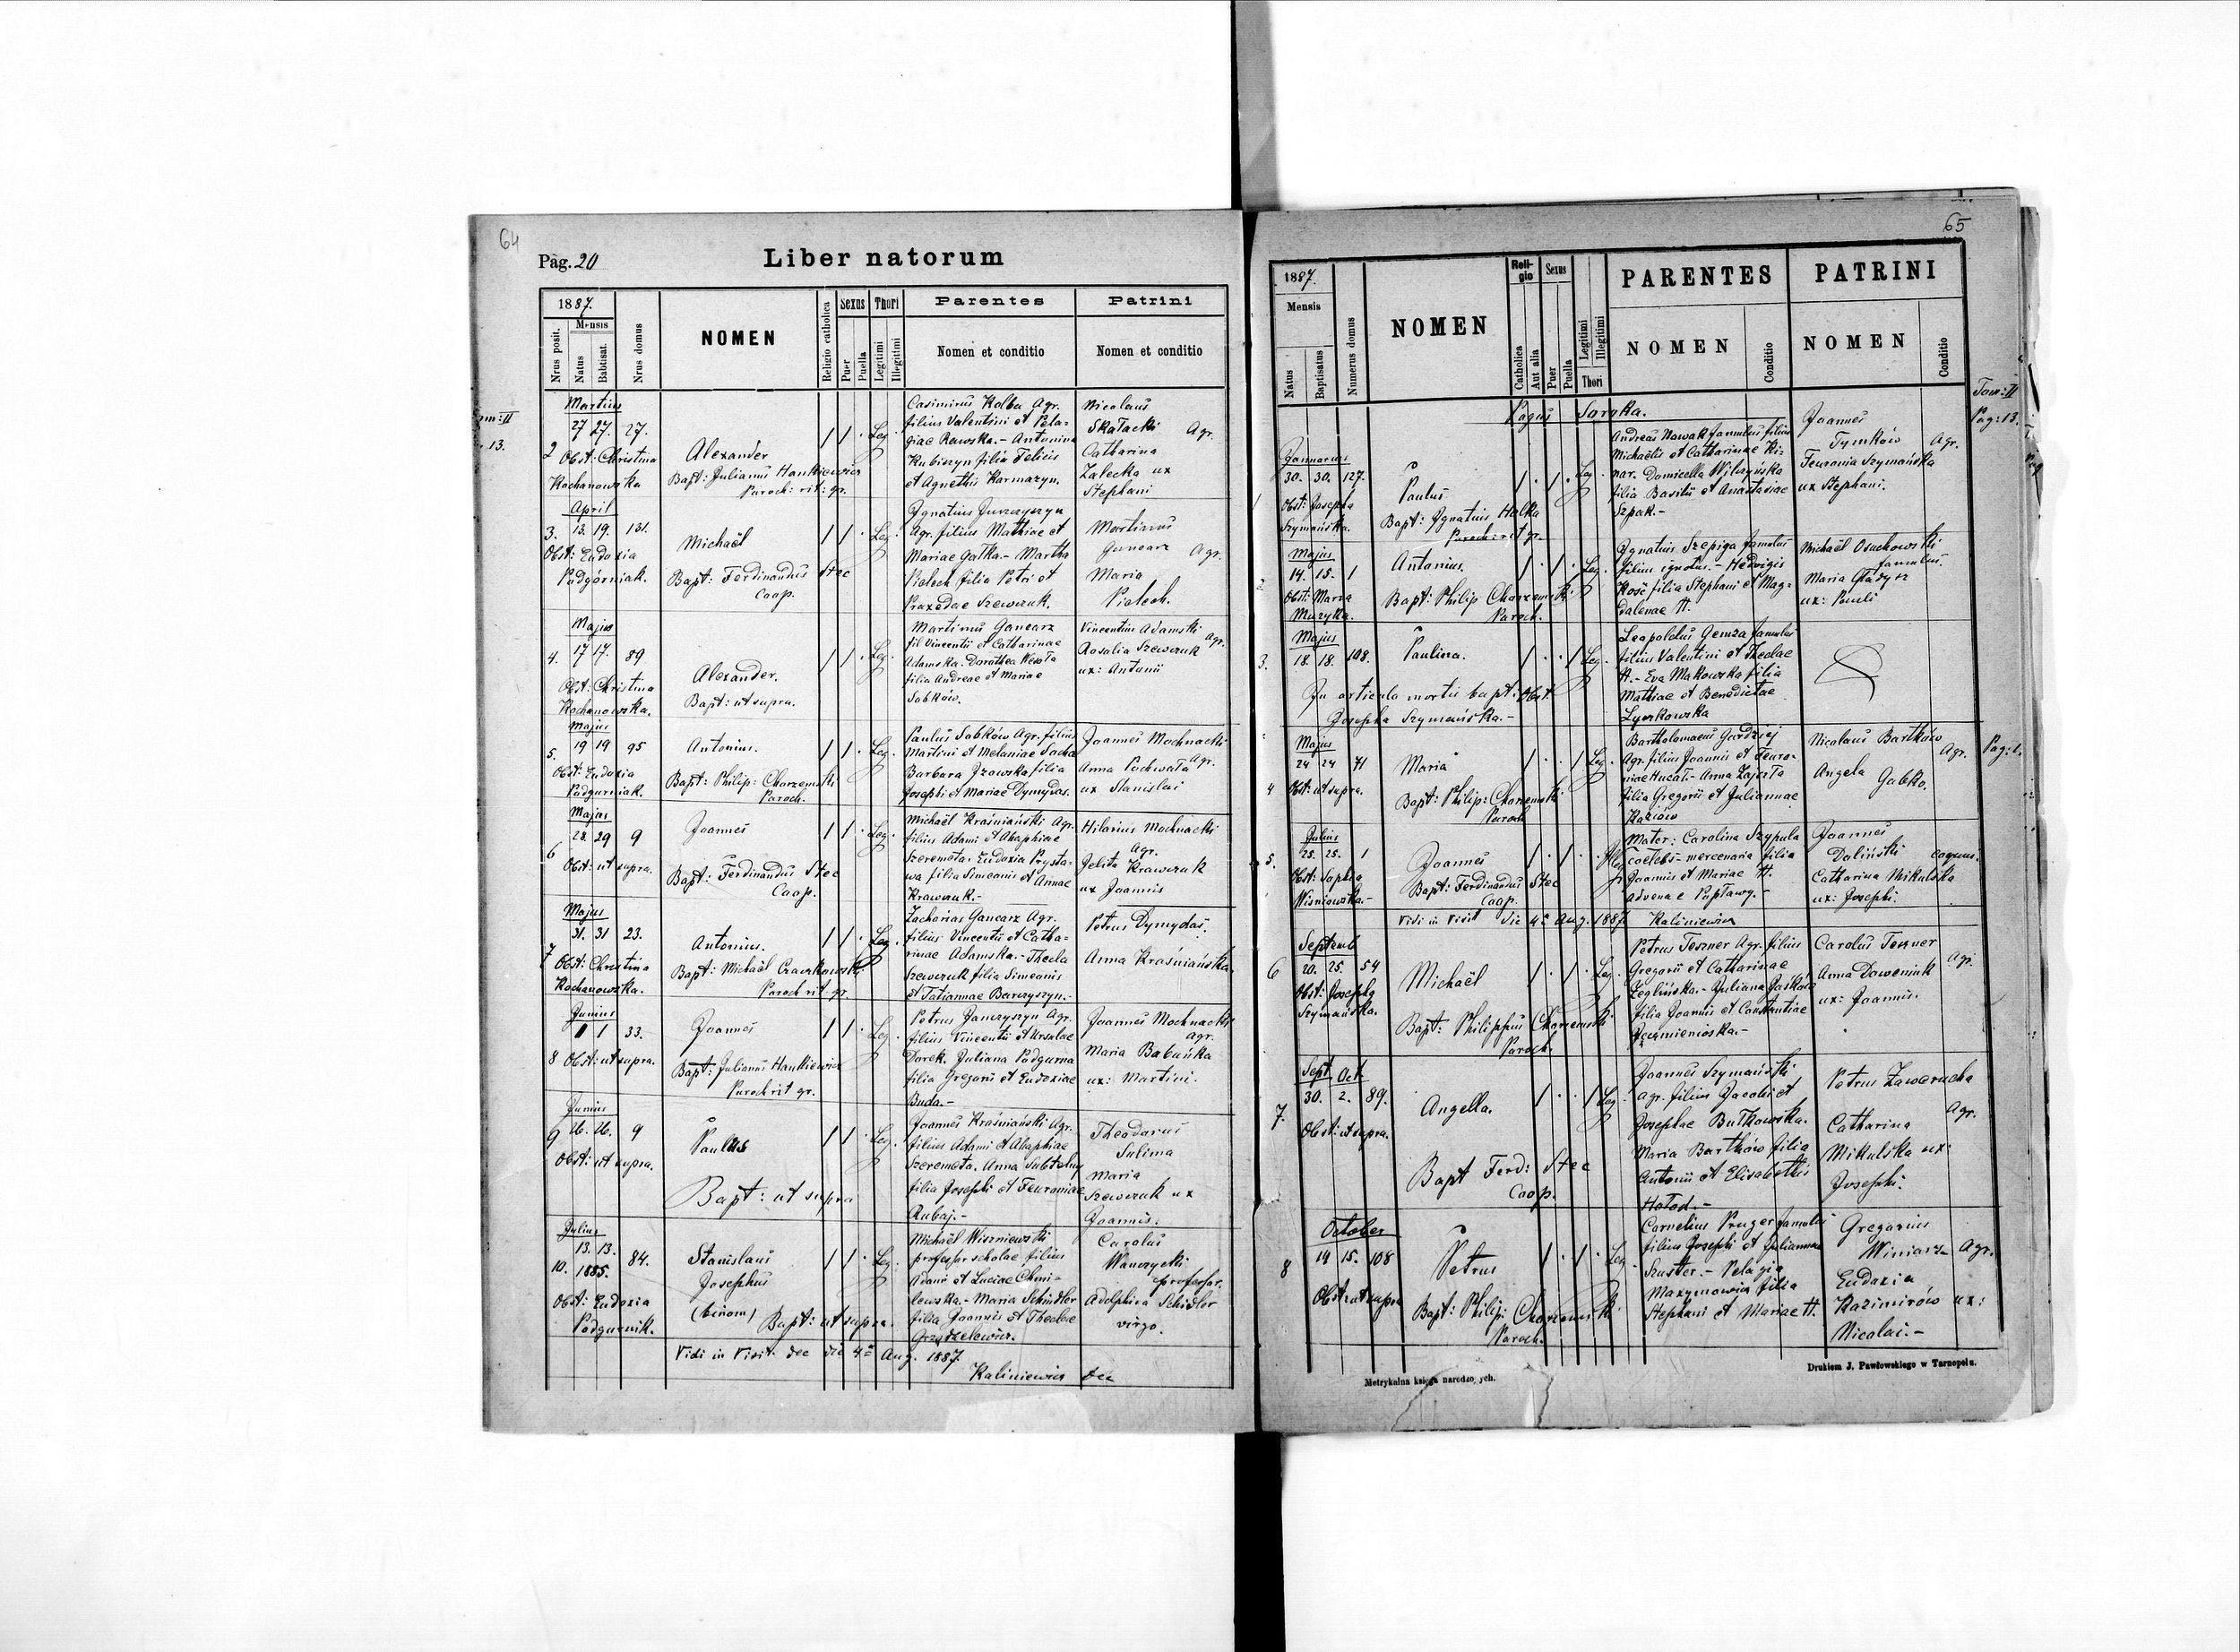 64
Pag. 20
Liber natorum
1887.
Nrus posit.
Mensis
Natus
Babtisat.
Nrus domus
NOMEN
Religio catholica
Sexus
Puer
Puella
Thori
Legitimi
Illegitimi
Parentes
Nomen et conditio
Patrini
Nomen et conditio
Martius
2 27 27. 27.
Obst: Christina
Kochanowska
Alexander
Bapt: Julianus Hankiewicz
Paroch: rit: gr.
1 1 . Leg.
Casimirus Kolba Agr.
filius Valentini et Pela-
giae Rewska.- Antonina
Kubiszyn filia Felicis
et Agnethis Karmazyn.
Nicolaus
Skałacki Agr.
Catharina
Zalecka ux
Stephani
April
3. 13. 19. 131.
Obst: Eudoxia
Podgórniak.
Michaël
Bapt: Ferdinandus Stec
Coop.
1 1 . Leg.
Ignatius Jurczyszyn
Agr. filius Mathiae et
Mariae Gałka.- Martha
Pielech filia Petri et
Praxedae Szewczuk.
Martinus
Gancarz Agr.
Maria
Pielech.
Majus
4. 17 17. 89
Obst: Christina
Kochanowska.
Alexander.
Bapt: ut supra.
1 1 . Leg.
Martinus Gancarz
fil Vincentii et Catharinae
Adamska. Dorothea
filia Andreae et Mariae
Sobków.
Vincentius Adamski
Agr.
Rosalia Szewczuk
ux: Antonii
Majus
5. 19 19 95
Obst: Eudoxia
Podgurniak.
Antonius.
Bapt: Philip: Chorzemski
Paroch.
1 1 . Leg.
Paulus Sobków Agr. filius
Martini et Melaniae Socha
Barbara Izowska filia
Josephi et Mariae Dymydas.
Joannes Mochnacki
Agr.
Anna Pochwała
ux Stanislai
Majus
6 28. 29 9
Obst: ut supra.
Joannes
Bapt: Ferdinandus Stec
Coop.
1 1 . Leg.
Michaël Kraśniański Agr.
filius Adami et Ahaphiae
Szeremeta. Eudoxia Prysta-
wa filia Simeonis et Annae
Krawczuk.-
Hilarius Mochnacki
Agr.
Jelita Krawczuk
ux Joannis
Majus
7 31. 31 23.
Obst: Christina
Kochanowska.
Antonius.
Bapt: Michaël Czaczkowski
Paroch rit gr.
1 1 . Leg.
Zacharias Gancarz Agr.
filius Vincentii et Catha-
rinae Adamska.- Thecla
Szewczuk filia Simeonis
et Tatiannae Barczyszyn.-
Petrus Dymydas.
Anna Kraśniańska
Junius
1 1 33.
8 Obst: ut supra.
Joannes
Bapt: Julianus Hankiewicz
Paroch rit gr.
1 1 . Leg.
Petrus Janczyszyn Agr.
filius Vincentii et Ursulae
Dorek. Juliana Podgurna
filia Gregorii et Eudoxiae
Buda.-
Joannes Mochnacki
agr.
Maria Babuńka
ux: Martini.
Junius
9 9
Obst: ut supra.
Paulus
Bapt: ut supra
1 1 . Leg.
Joannes Kraśniański Agr.
filius Adami et Ahaphiae
Szeremeta. Anna Subtelny
filia Josephi et Feuroniae
Rubaj.-
Theodorus
Sulima
Maria
Szewczuk ux
Joannis.
Julius
10. 13. 13. 84.
1885.
Obst: Eudoxia
Podgurnik.
Stanislaus
Josephus
(binom)
Bapt: ut supra.
1 1 . Leg.
Michaël Wiszniewski
professor scholae filius
Adami et Luciae Chmi-
lewska.- Maria Schindler
filia Joannis et Theclae
Grządzelewicz.
Carolus
Wanczycki
professor.
Adolphina Schidler
virgo.
Vidi in Visit. dec die 4ª Aug. 1887.
Kaliniewicz Dec
65
1887.
Mensis
Natus
Baptisatus
Numerus domus
NOMEN
Religio
Catholica
Aut alia
Sexus
Puer
Puella
Legitimi
Illegitimi
Thori
PARENTES
NOMEN
Conditio
PATRINI
NOMEN
Conditio
Tom: II
Pag: 13.
Pagus Soroka.
Januarius
1 30. 30. 127.
Obst: Josepha
Szymańska.
Paulus
Bapt: Ignatius Halka
Paroch: rit gr.
1 . 1 . Leg.
Andreas Nowak famulus filius
Michaëlis et Catharinae Ki-
nar. Domicella Wilczyńska
filia Basilii et Anastasiae
Szpak.-
Joannes
Tymków Agr.
Feuronia Szymańska
ux Stephani.
Majus
2 14. 15. 1
Obst: Maria
Muzyka.
Antonius.
Bapt: Philip Chorzemski
Paroch.
1 . 1 . Leg.
Ignatius Szepiga famulus
filius ignotus.- Hedvigis
Kość filia Stephani et Mag-
dalenae N.
Michaël Osuchowski
famulus.
Maria Gładysz
ux: Pauli
Majus
3. 18. 18. 108.
Paulina.
In articulo mortis bapt: Obst.
Josepha Szymańska.-
1 . . 1 Leg.
Leopoldus Gemza famulus
filius Valentini et Theclae
N.- Eva Makowska filia
Mathiae et Benedictae
Lyszkowska
Majus
24 24 71
4 Obst: ut supra.
Maria
Bapt: Philip: Chorzemski
Paroch
1 . . 1 Leg.
Bartholomaeus Gurdziej
Agr. filius Joannis et Feuro-
niae Hucał.- Anna Zajęta
filia Gregorii et Juliannae
Kaziów
Nicolaus Bartków
Agr.
Angela Gabko.
Pag: 1.
Julius
5. 25. 25. 1
Obst: Sophia
Wiśniowska.-
Joannes
Bapt: Ferdinandus Stec
Coop.
1 . 1 . Illeg
Mater: Carolina Szypula
coelebs- mercenaria filia
Joannis et Mariae N.
Joannes
Doliński coquus.
Catharina Mikulska
ux: Josephi.
Vidi in Visit die 4ª Aug. 1887 Kaliniewicz
Septemb
6 20. 25. 54
Obst: Josepha
Szymańska.
Michaël
Bapt: Philippus Chorzemski
Paroch.
1 . 1 . Leg.
Petrus Teszner Agr. filius
Gregorii et Catharinae
Żeglińska.- Juliana Jaśków
filia Joannis et Constantiae
Carolus Teszner
Agr.
Anna Doweniuk
ux: Joannis.
Sept. Oct.
7. 30. 2. 89.
Obst: ut supra.
Angella.
Bapt Ferd: Stec
Coop.
1 . . 1 Leg
Joannes Szymański
agr. filius Jacobi et
Josephae Butkowska.
Maria Bartków filia
Antonii et Elisabethis
Hołod.-
Petrus Zawerucha
Agr.
Catharina
Mikulska ux:
Josephi.
October
8 14 15. 108
Obst: ut supra
Petrus
Bapt: Philip: Chorzemski
Paroch.
1 . 1 . Leg.
Cornelius Pruger famulus
filius Josephi et Juliannae
Szuster.- Pelagia
Maxymowicz filia
Stephani et Mariae N.
Gregorius
Winiarz Agr.
Eudoxia
Kazimirów ux:
Nicolai.-
Metrykalna księga narodzo,ych.
Drukiem J. Pawłowskiego w Tarnopolu.